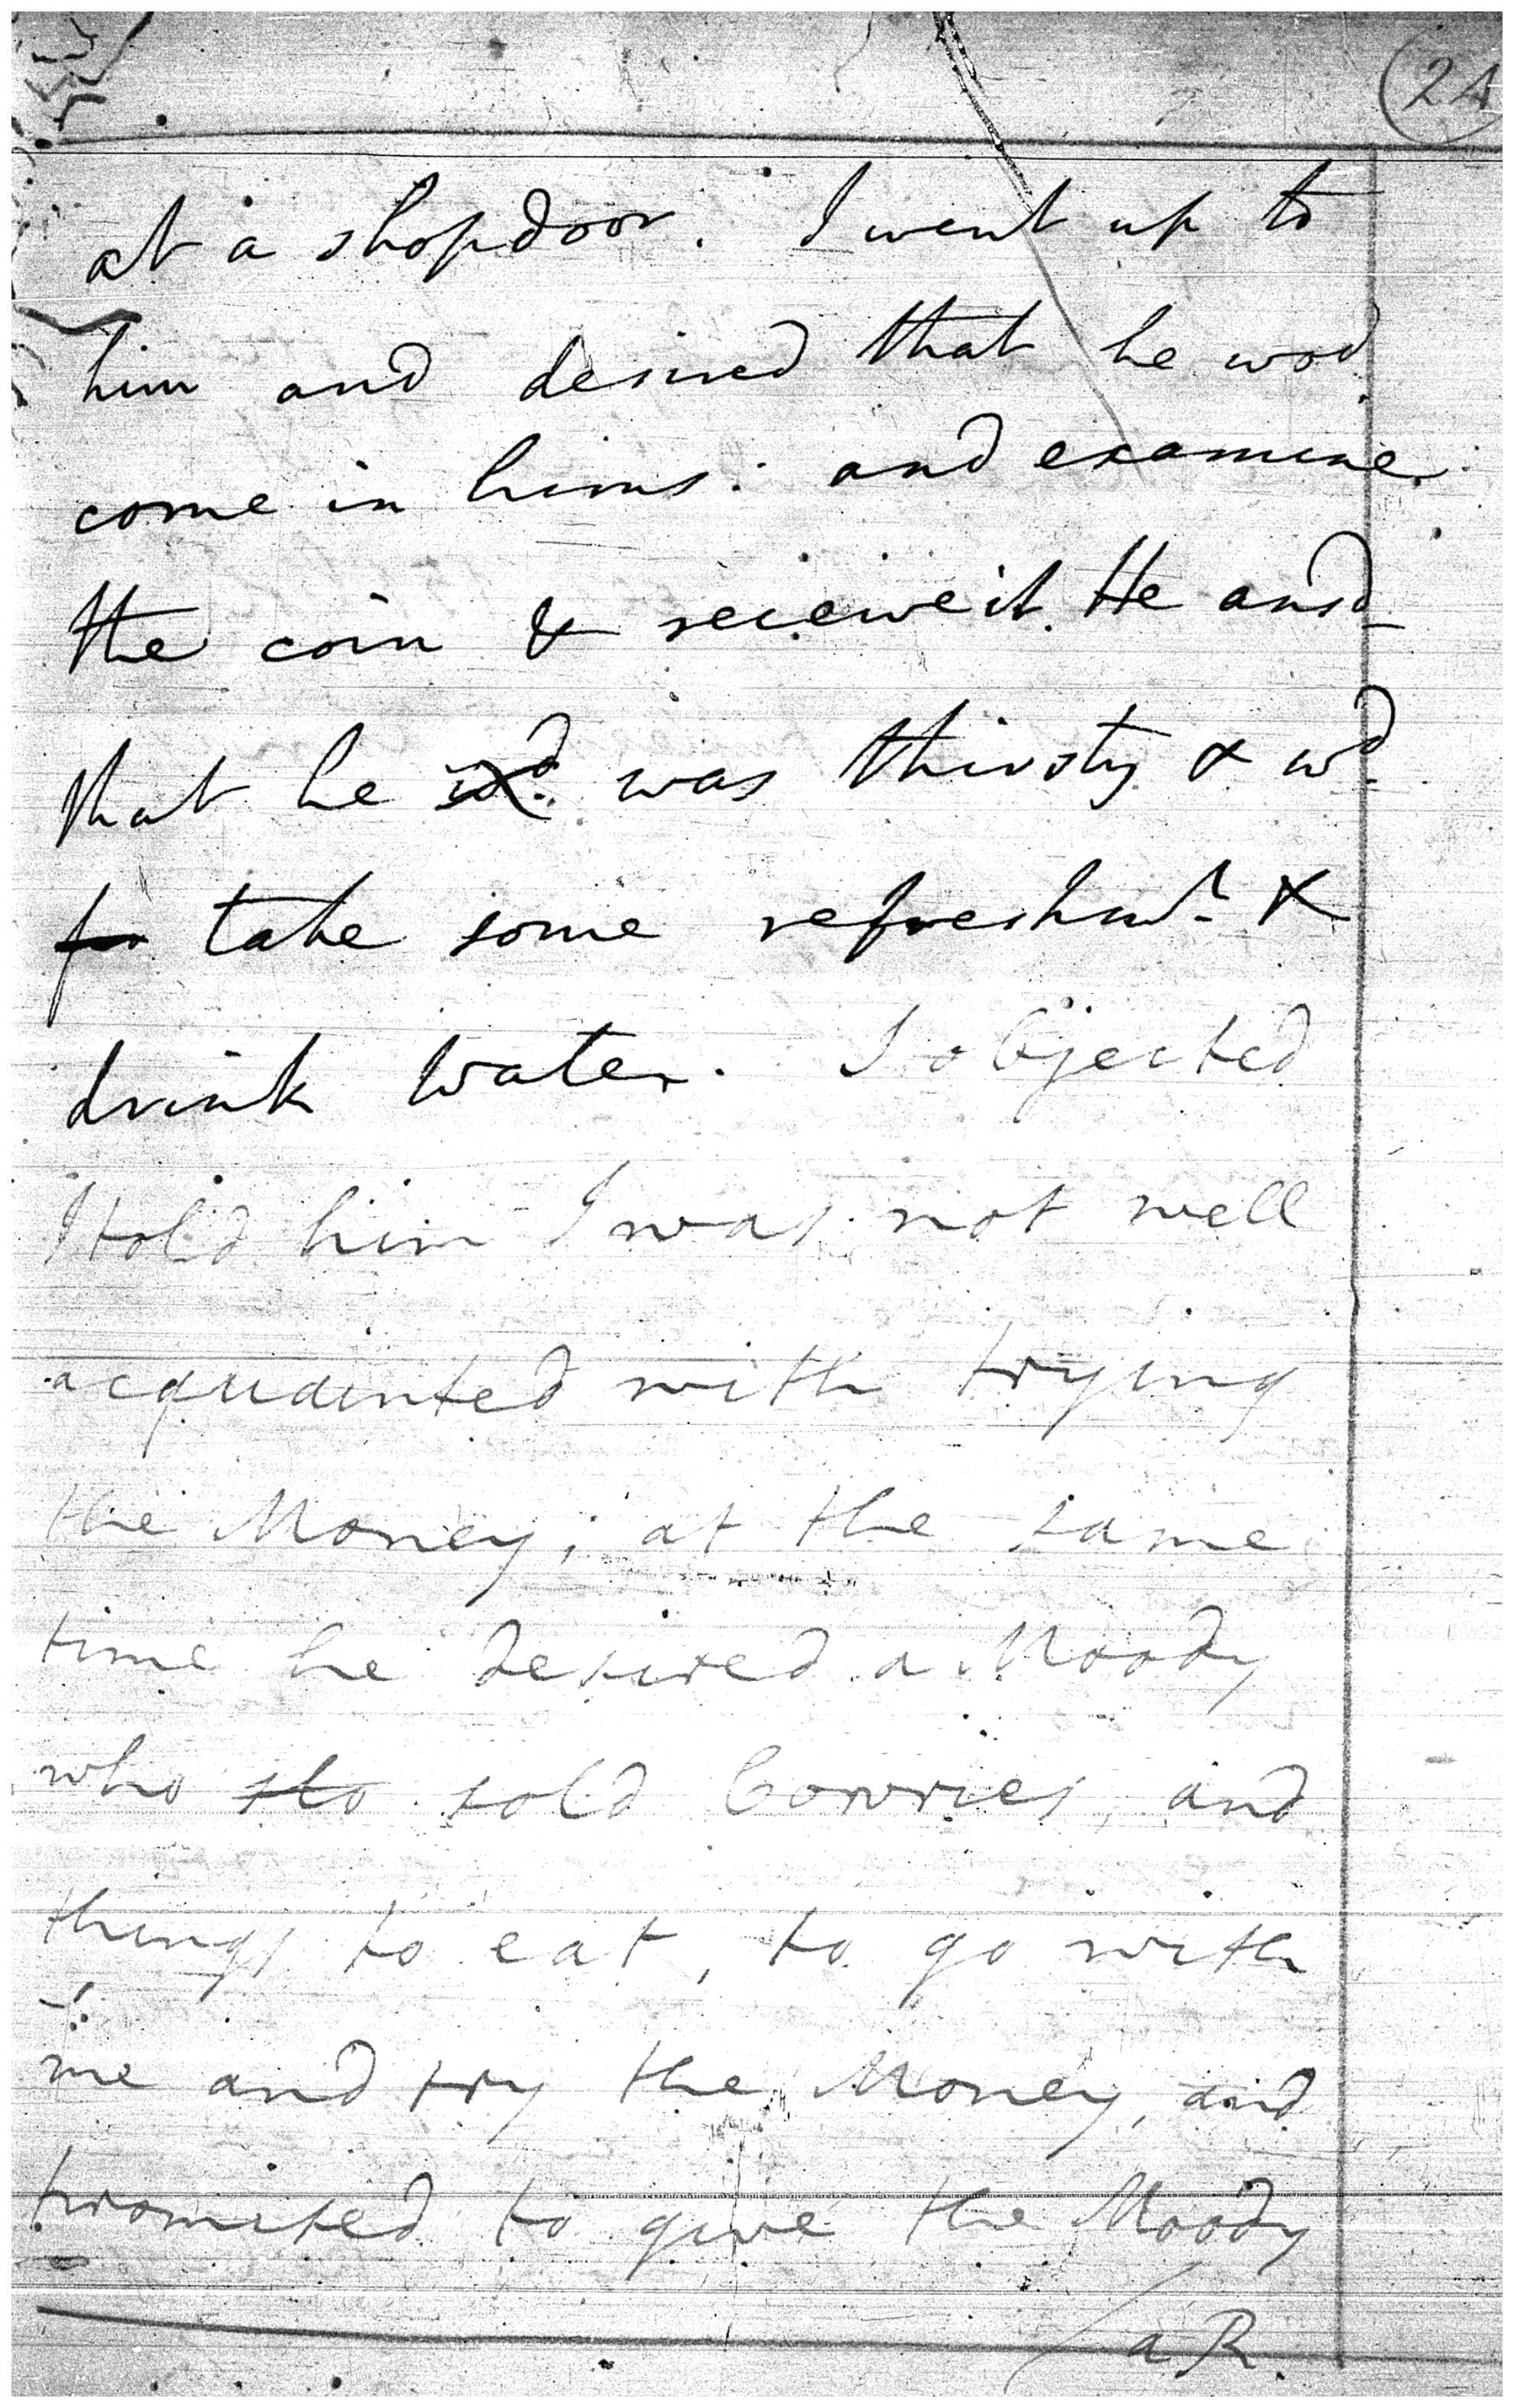 24
at a shopdoor. I went up to
him and desired that he wod
come in hims: and examine
the coin & receive it. He ansd
that he wd. was thirsty & wd.
for take some refreshmt. &
drink water. I objected
I told him I was not well
acquainted with trying
the Money; at the same
time he desired a Moody
who sto sold Cowries, and
things to eat, to go with
me and try the Money, and
promised to give the Moody
a R.